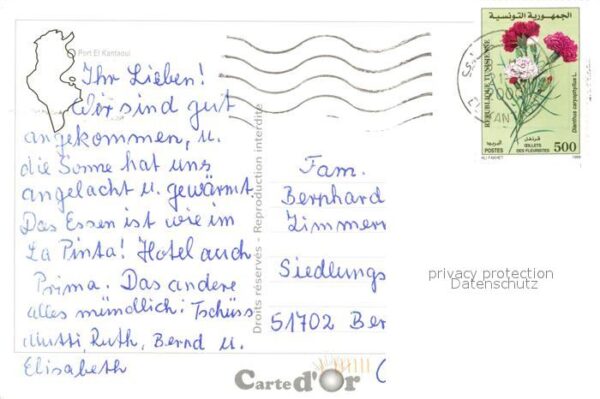 Port El Kantaoui
Ihr Lieben!
Wir sind gut
angekommen, u.
die Sonne hat uns
angelacht u. gewärmt.
Das Essen ist wie im
La Pinta! Hotel auch
Prima. Das andere
alles mündlich. Tschüss
Mutti, Ruth, Bernd u.
Elisabeth
Droits réservés - Reproduction interdite
Fam.
Bernhard
Zimmern
Siedlungs
51702 Ber
privacy protection
Datenschutz
Carte d'Or
الجمهورية التونسية
REPUBLIQUE TUNISIENNE
Dianthus caryophyllus L.
قرنفل
ŒILLETS
DES FLEURISTES
البريد
POSTES
500
1999